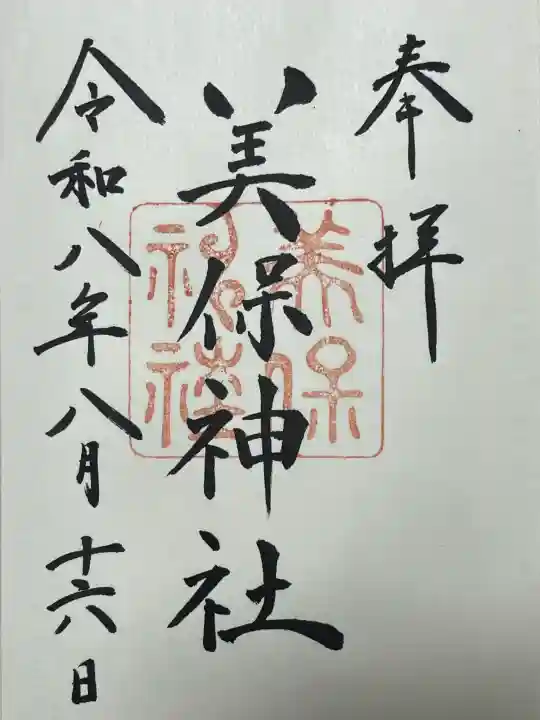 奉拝
美保神社
美保
神社
令和八年八月十六日